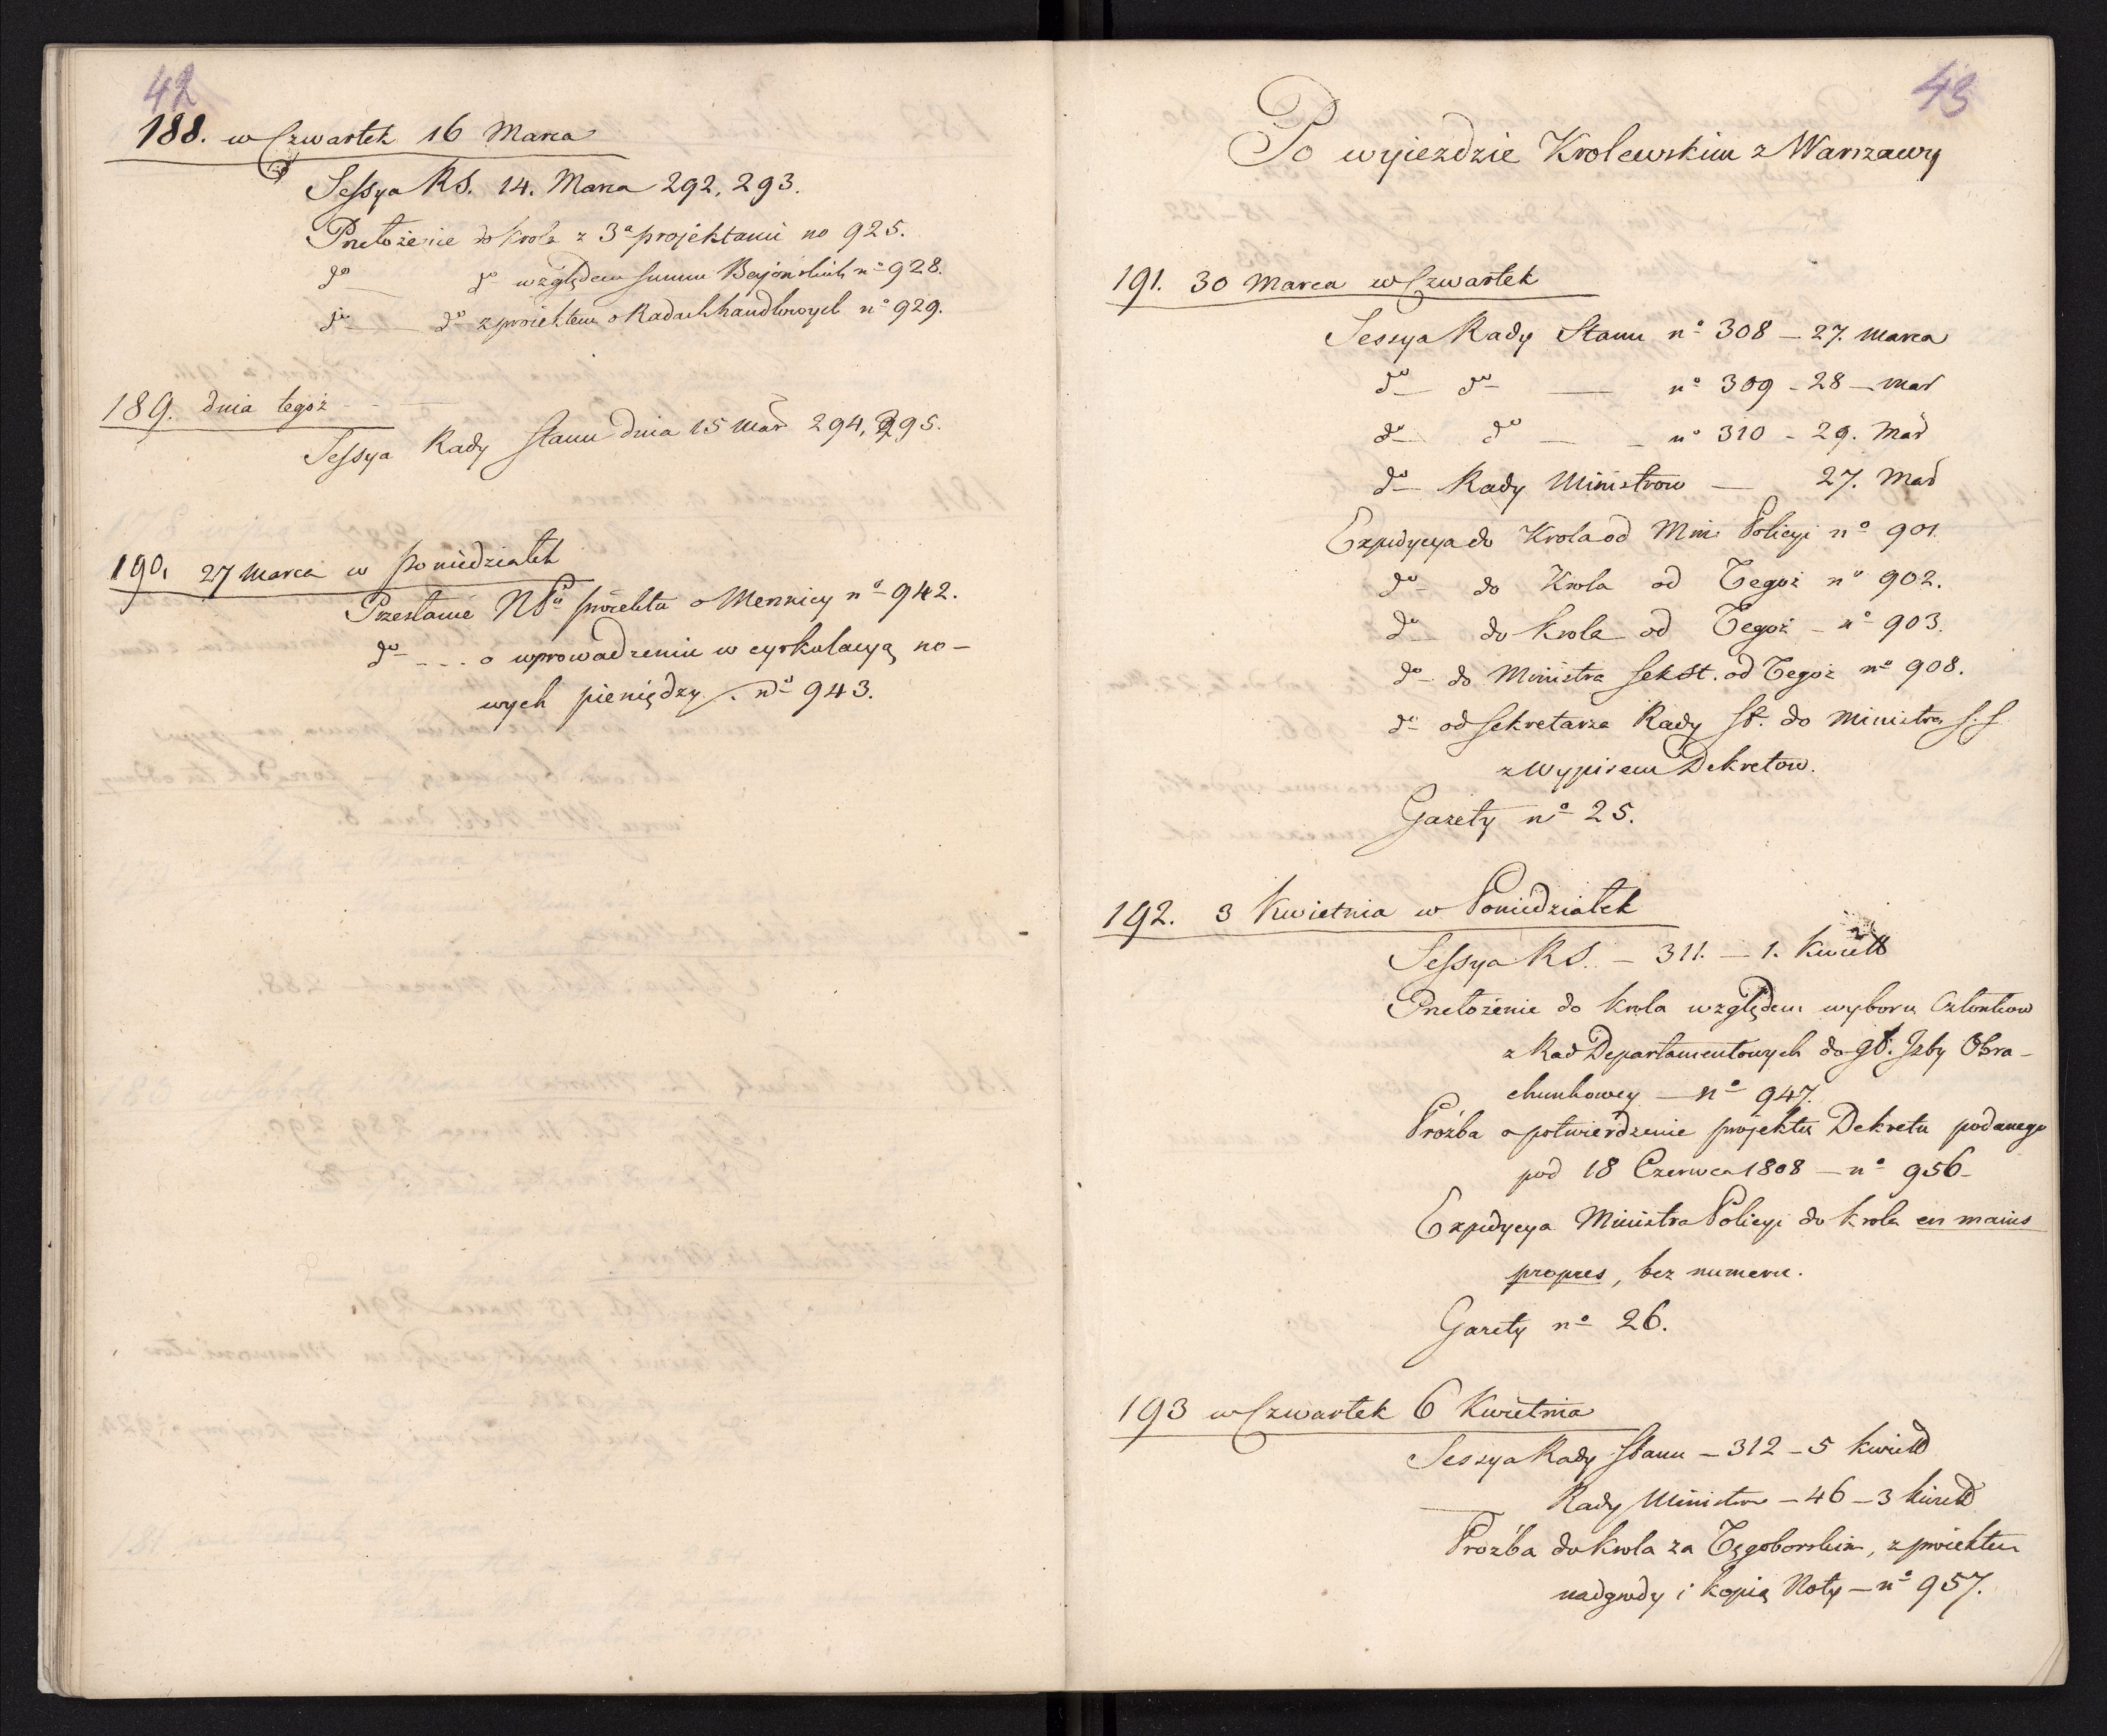 42
188. w Czwartek 16 Marca
Sessya RS. 14. Marca 292, 293.
Przełożenie do Krola z 3ª projektami no 925.
do do względem summ Bajońskich nº 928.
do do z proiektem o Radach handlowych nº 929.
189. dnia tegoż
Sessya Rady Stanu dnia 15 Mar 294, 295.
190. 27 Marca w Poniedziałek
Przesłanie proiektu o Mennicy nº 942.
do - - - o wprowadzeniu w cyrkulacyą no-
wych pieniędzy. nº 943.
43
Po wyieździe Krolewskim z Warszawy
191. 30 Marca w Czwartek
Sessya Rady Stanu nº 308 - 27. Marca
do do — nº 309 - 28 - Mar
do do — nº 310 - 29. Mar
do Rady Ministrow — 27. Mar
Expedycya do Krola od Min: Policyi nº 901.
do do Krola od Tegoż nº 902.
do do Krola od Tegoż - nº 903.
do do Ministra Sek St. od Tegoż nº 908.
do od Sekretarza Rady St. do Ministra S. S
z Wypisem Dekretow.
Gazety nº 25.
192. 3 Kwietnia w Poniedziałek
Sessya RS. - 311. - 1. Kwiet
Przełożenie do Krola względem wyboru Członkow
z Rad Departamentowych do Gł. Izby Obra-
chunkowey — nº 947.
Proźba o potwierdzenie projektu Dekretu podanego
pod 18 Czerwca 1808 — nº 956-
Expedycya Ministra Policyi do Krola en mains
propres, bez numeru.
Gazety nº 26.
193 w Czwartek 6 Kwietnia
Sessya Rady Stanu - 312 - 5 Kwiet
— Rady Ministrow - 46 - 3 Kwiet
Proźba do Krola za Tęgoborskim, z proiektem
nadgrody i kopią Noty — nº 957.